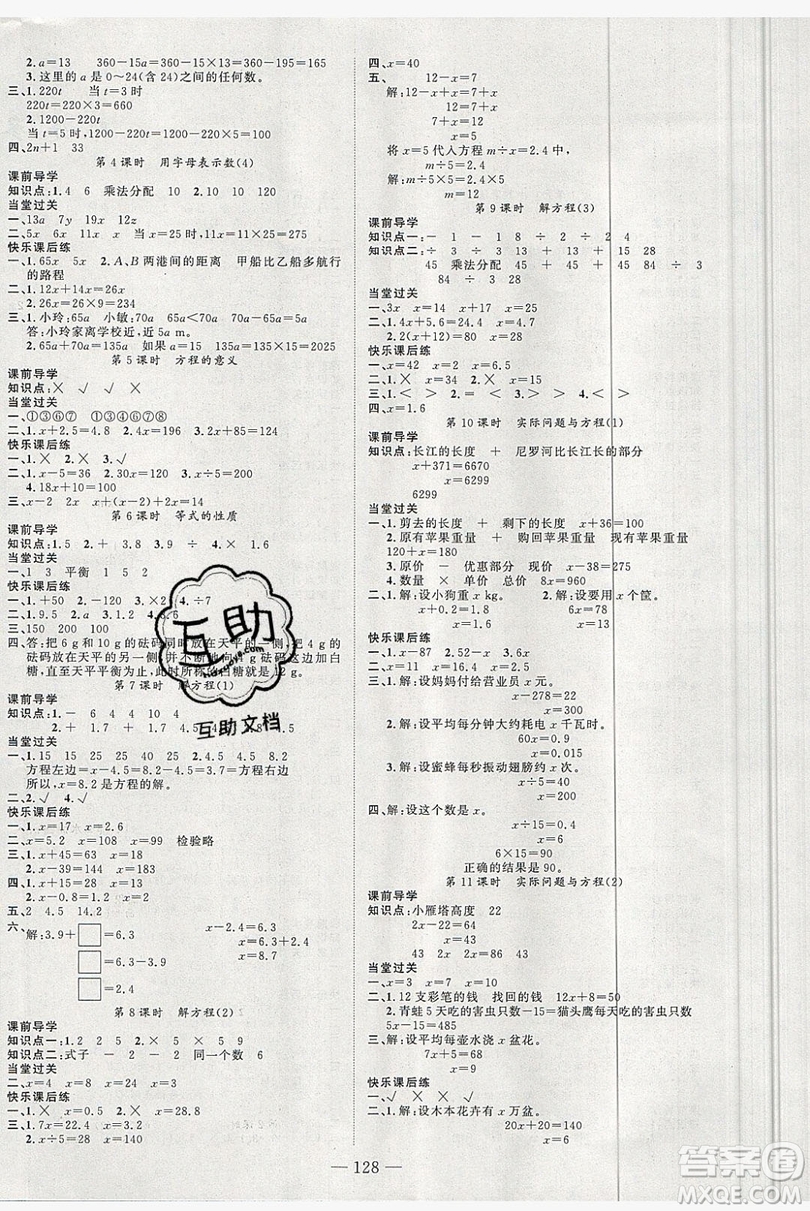 2. a=13　360-15a=360-15×13=165
3. 这里的 a 是 0～24(含 24)之间的任何数。
三、1. 220t　当 t=3 时
220t=220×3=660
2. 1200-220t
当 t=5 时,1200-220t=1200-220×5=100
四、2n+1　33
第 4 课时　用字母表示数(4)
课前导学
知识点:1. 4　6　乘法分配　10　2. 10　120
当堂过关
一、13a　7y　19x　12z
二、5x　6x　11x　当 x=25 时,11x=11×25=275
快乐课后练
一、1. 65x　5x　2. A、B 两港间的距离　甲船比乙船多航行
的路程
二、1. 12x+14x=26x
2. 26x=26×9=234
三、1. 小玲:65a　小敏:70a　70a-65a=5a
答:小玲家离学校近,近 5a m。
2. 65a+70a=135a　如果 a=15　135a=135×15=2025
第 5 课时　方程的意义
课前导学
知识点:×　√　√　×
当堂过关
一、①③⑥⑦　①③⑥⑦⑧
二、1. 2+x=5　2. 4.8÷a=1.2　3. 2x+85=124
快乐课后练
一、1. ×　2. ×　3. √
二、1. x-5=36　2. 30x=120　3. x÷8=150
4. 18x+10=100
三、x-2　2x　x-2=2x-50
第 6 课时　等式的性质
课前导学
知识点:1. 5　2. +　+　3. 8　3. 9　÷　×　1. 9　4. 不变
当堂过关
一、1　3　平衡　1　5　2
快乐课后练
一、1. +50　2. -10　3. ×2　4. ÷7
二、1. 9. 5　2. a　3. 1. 2　4. 6
三、150　200　100
四、答:把 6 g 和 10 g 的砝码同时放在天平的一侧,把 4 g 的
砝码放在天平的另一侧,并不断地向 4 g 砝码一侧加白
糖,直至天平平衡为止,此时所称白糖就是 12 g。
第 7 课时　解方程(1)
课前导学
知识点:1. -　6　4　4　10　4
2. +　1. 2　+　1. 2　15　-　7. 8
当堂过关
一、1. 15　15　29　2. 4. 5　4. 5　8. 2
方程左边=x-4.5=8.2-4.5=3.7=方程右边
所以,x=8.2 是方程的解。
二、2. √　4. √
快乐课后练
一、x=17　x=2.6
二、x=5.2　x=108　x=99　检验略
三、1. x+45=63　x=18
2. x-13=80　x=93
四、1. x+15=58　x=43
2. x-30=55　x=85
五、2　4. 5　14. 2
六、解:3.9+□=6.3　x-2.4=6.3
□=6.3-3.9　x=6.3+2.4
□=2.4　x=8.7
第 8 课时　解方程(2)
课前导学
知识点一:1. 2　2　2. 5　5　×　5
知识点二:式子　-　2　-　2　同一个数　6
当堂过关
二、x=4　x=8　x=24　x=9
快乐课后练
一、1. ×　x=0.5　2. ×　x=28.8
三、1. 7x=22.4　x=3.2
2. x÷5=28　x=140
四、x=40
五、12-x=7
解:12-x+x=7+x
12=7+x
x=5
将 x=5 代入方程 m÷x=2.4 中,得
m÷5=2.4
m÷5×5=2.4×5
m=12
第 9 课时　解方程(3)
课前导学
知识点一:-　1　-　1　8　÷　2　÷　2　4
知识点二:÷　3　÷　3　13　+　13　+　15　28
45　乘法分配　45　+　45　84　÷　3
84÷3　28
当堂过关
一、3x　x=3　x+17　x=25
二、1. 4x+5=24.6　x=4.9
2. 2(x+12)=80　x=28
快乐课后练
一、x=42　x=2　x=4
二、1. ×　2. √　3. ×　三、1. <　>　2. >　<　3. <　>
四、x=1.6
第 10 课时　实际问题与方程(1)
课前导学
知识点:长江的长度　+　尼罗河比长江长的部分
x+371=6670
x=6299
6299
当堂过关
一、1. 剪去的长度　+　剩下的长度　x+36=100
2. 原有苹果重量　+　购回苹果重量　现有苹果重量
120+x=480
3. 原价　-　优惠部分　现价　x-38=258
4. 数量　×　单价　总价　8x=960
二、1. 解:设小狗重 x kg。　2. 解:设要用 x 个筐。
x+0.4=1.3　16x=144
x=0.9　x=9
快乐课后练
一、x-87　二、1. ×　2. ×　3. ×
三、1. 解:设妈妈付给营业员 x 元。
x-278=22
x=300
2. 解:设平均每分钟大约耗电 x 千瓦时。
60x=0.9
x=0.015
3. 解:设蜜蜂每秒振动翅膀约 x 次。
5x=1200
x=240
四、解:设这个数是 x。
x÷15=0.4
x=6
6×15=90
正确的结果是 90。
第 11 课时　实际问题与方程(2)
课前导学
知识点:小雁塔高度　22
2x-22=64
43　2x=86　43　20
x=43
当堂过关
一、x=3　x=7　x=10
二、1. 12 支彩笔的钱　12x　12x+8=50
2. 青蛙 5 天吃的害虫只数=猫头鹰每天吃的害虫只数
5x-15=485
三、解:设平均每壶水浇 x 盆花。
7x+5=82
x=11
快乐课后练
二、1. 解:设木本花卉有 x 万盆。
20x+20=140
x=6
128
互助
互助文档
答案圈
MXQE.COM